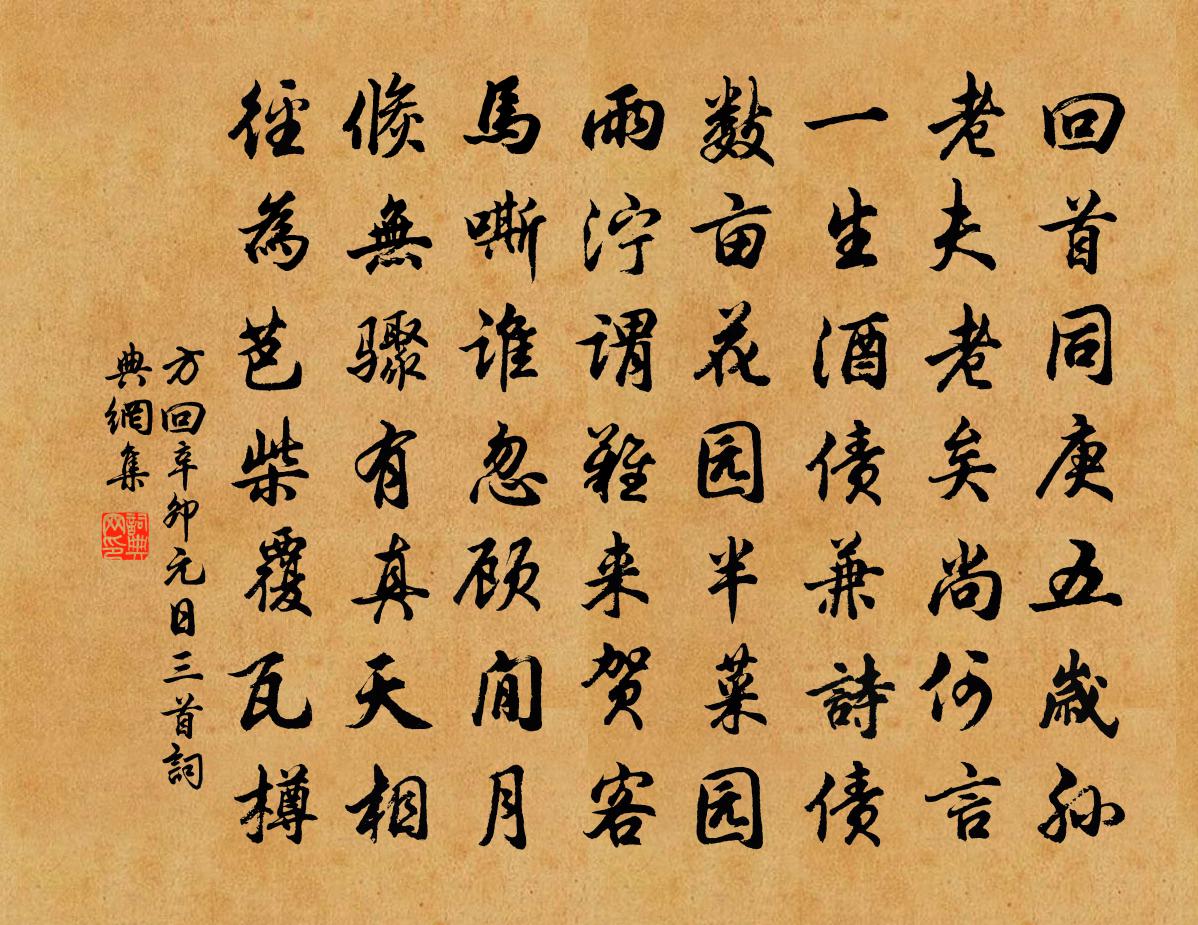 回首同庚五歲孙
老夫老矣尚何言
一生酒债兼詩债
数亩花园半菜园
雨泞谓難来贺客
馬嘶谁忽顾閒月
倏無骤有真天相
径為芭柴覆瓦樽
方回辛卯元日三首詞
典網集
詞典
网印